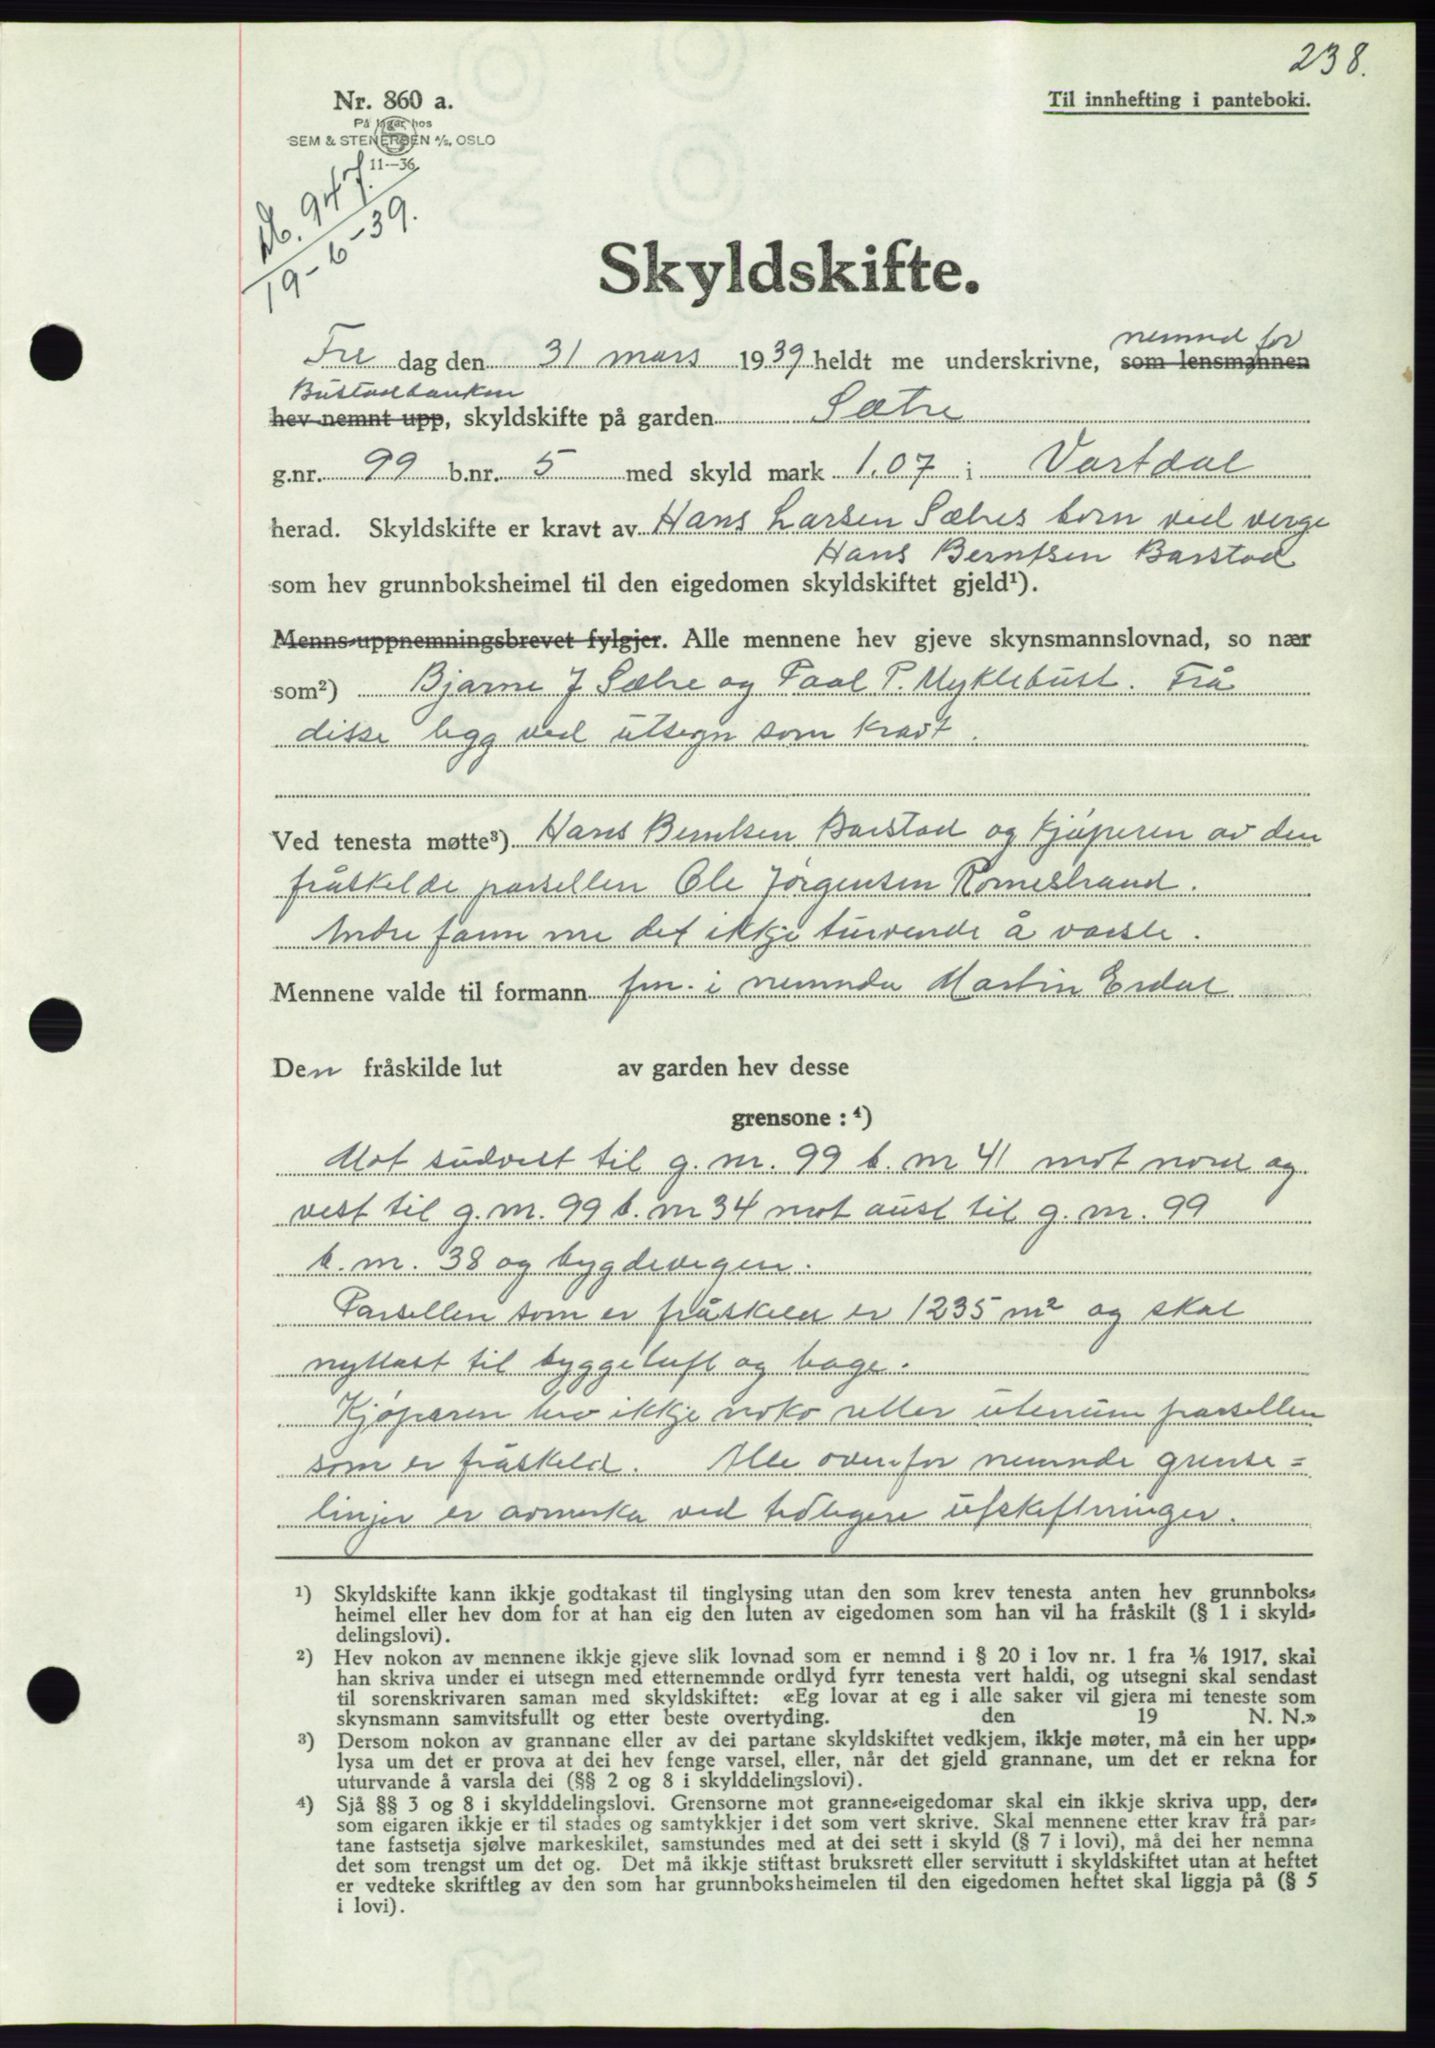 238.
Nr. 860 a.
Til innhefting i panteboki.
På lager hos
SEM & STENERSEN A/S, OSLO
11—36
Db. 947.
19-6-39.
Skyldskifte.
nemnd for
Fre dag den 31 mars 1939 heldt me underskrivne, som lensmannen
Bustadbanken
hev nemnt upp, skyldskifte på garden Sætre
g.nr. 99 b.nr. 5 med skyld mark 1.07 i Vartdal
herad. Skyldskifte er kravt av Hans Larsen Sætres born ved verge
Hans Berntsen Barstad
som hev grunnboksheimel til den eigedomen skyldskiftet gjeld¹).
Menns-uppnemningsbrevet fylgjer. Alle mennene hev gjeve skynsmannslovnad, so nær
som²) Bjarne J Sætre og Paal P. Myklebust. Frå
disse legg ved utsegn som kravt.
Ved tenesta møtte³) Hans Berntsen Barstad og kjøperen av den
fråskelde parsellen Ole Jørgensen Romestrand.
Andre fann me det ikkje turvende å varsle.
Mennene valde til formann fm. i nemnda Martin Erdal
Den fråskilde lut av garden hev desse
grensone : ⁴)
Mot sudvest til g. nr. 99 b. nr 41 mot nord og
vest til g. nr. 99 b. nr 34 mot aust til g. nr. 99
b. nr. 38 og bygdevegen.
Parsellen som er fråskeld er 1235 m² og skal
nyttast til byggetuft og hage.
Kjøperen hev ikkje noko retter utenum parsellen
som er fråskeld. Alle ovenfor nemnde grense=
linjer er avmerka ved tidlegere utskiftninger.
¹) Skyldskifte kann ikkje godtakast til tinglysing utan den som krev tenesta anten hev grunnboks-
heimel eller hev dom for at han eig den luten av eigedomen som han vil ha fråskilt (§ 1 i skyld-
delingslovi).
²) Hev nokon av mennene ikkje gjeve slik lovnad som er nemnd i § 20 i lov nr. 1 fra 1/6 1917, skal
han skriva under ei utsegn med etternemnde ordlyd fyrr tenesta vert haldi, og utsegni skal sendast
til sorenskrivaren saman med skyldskiftet: «Eg lovar at eg i alle saker vil gjera mi teneste som
skynsmann samvitsfullt og etter beste overtyding. den 19 N. N.»
³) Dersom nokon av grannane eller av dei partane skyldskiftet vedkjem, ikkje møter, må ein her upp-
lysa um det er prova at dei hev fenge varsel, eller, når det gjeld grannane, um det er rekna for
uturvande å varsla dei (§§ 2 og 8 i skylddelingslovi).
⁴) Sjå §§ 3 og 8 i skylddelingslovi. Grensorne mot granne-eigedomar skal ein ikkje skriva upp, der-
som eigaren ikkje er til stades og samtykkjer i det som vert skrive. Skal mennene etter krav frå par-
tane fastsetja sjølve markeskilet, samstundes med at dei sett i skyld (§ 7 i lovi), må dei her nemna
det som trengst um det og. Det må ikkje stiftast bruksrett eller servitutt i skyldskiftet utan at heftet
er vedteke skriftleg av den som har grunnboksheimelen til den eigedomen heftet skal liggja på (§ 5
i lovi).